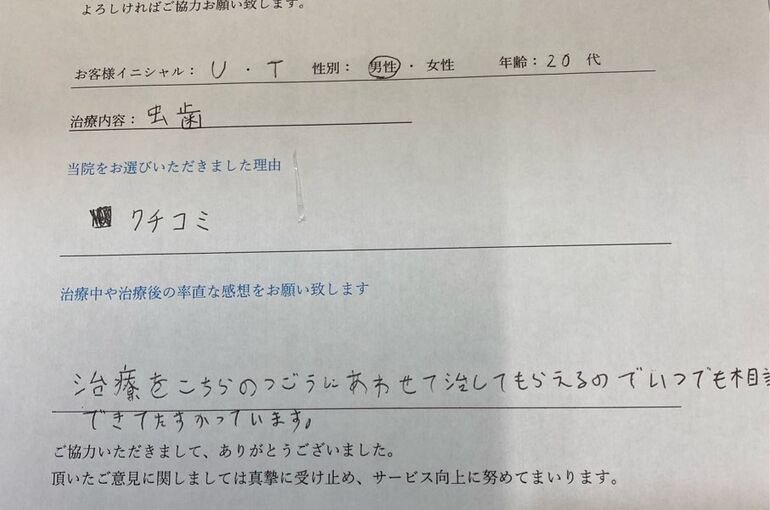 よろしければご協力お願い致します。
お客様イニシャル： U ・ T 性別： 男性 ・ 女性 年齢：20 代
治療内容： 虫歯
当院をお選びいただきました理由
クチコミ
治療中や治療後の率直な感想をお願い致します
治療をこちらのつごうにあわせて治してもらえるのでいつでも相談
できてたすかっています。
ご協力いただきまして、ありがとうございました。
頂いたご意見に関しましては真摯に受け止め、サービス向上に努めてまいります。